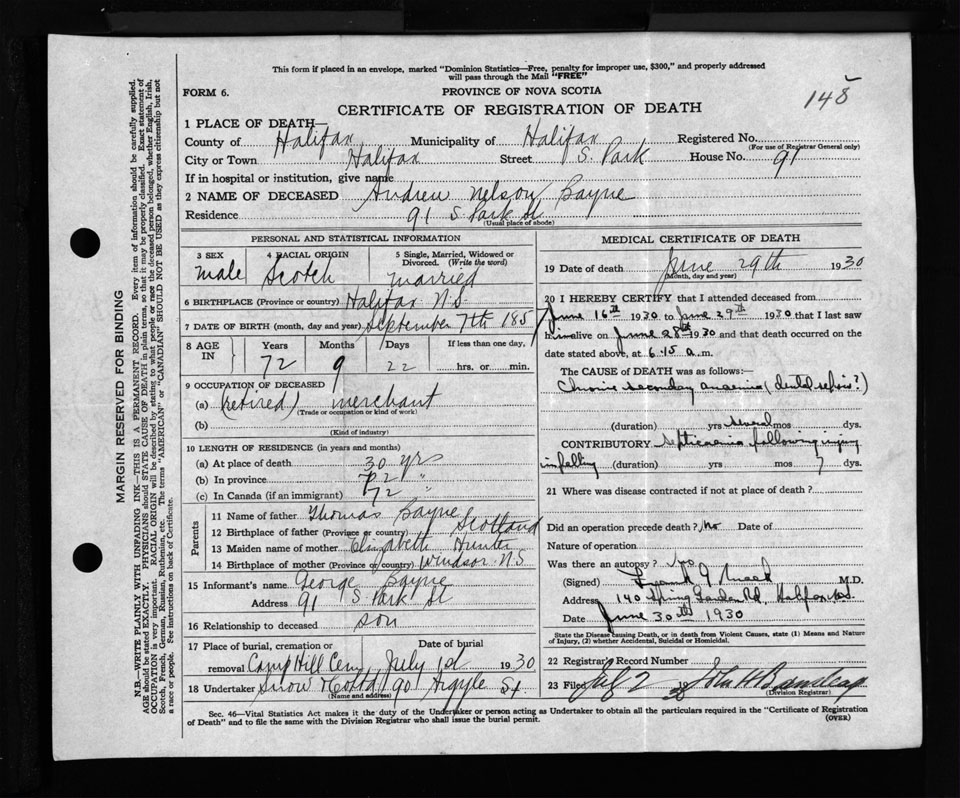 This form if placed in an envelope, marked "Dominion Statistics—Free, penalty for improper use, $300," and properly addressed
will pass through the Mail "FREE"
FORM 6.
PROVINCE OF NOVA SCOTIA
148
CERTIFICATE OF REGISTRATION OF DEATH
1 PLACE OF DEATH—
County of Halifax Municipality of Halifax Registered No.
(For use of Registrar General only)
City or Town Halifax Street S. Park House No. 91
If in hospital or institution, give name
2 NAME OF DECEASED Andrew Nelson Bayne
Residence 91 S Park St
(Usual place of abode)
PERSONAL AND STATISTICAL INFORMATION
3 SEX male
4 RACIAL ORIGIN Scotch
5 Single, Married, Widowed or Divorced. (Write the word) married
6 BIRTHPLACE (Province or country) Halifax N.S.
7 DATE OF BIRTH (month, day and year) September 7th 185
8 AGE IN Years 72 Months 9 Days 22 If less than one day, hrs. or min.
9 OCCUPATION OF DECEASED
(a) (retired) merchant
(Trade or occupation or kind of work)
(b)
(Kind of industry)
10 LENGTH OF RESIDENCE (in years and months)
(a) At place of death 30 yrs
(b) In province 72 "
(c) In Canada (if an immigrant) 72 "
Parents
11 Name of father Thomas Bayne
12 Birthplace of father (Province or country) Scotland
13 Maiden name of mother Elizabeth Hunter
14 Birthplace of mother (Province or country) Windsor N.S.
15 Informant's name George Bayne
Address 91 S Park St
16 Relationship to deceased son
17 Place of burial, cremation or removal Camp Hill Cem Date of burial July 1st 1930
18 Undertaker Snow & Co Ltd 90 Argyle St
(Name and address)
MEDICAL CERTIFICATE OF DEATH
19 Date of death June 29th 1930
(Month, day and year)
20 I HEREBY CERTIFY that I attended deceased from
June 16th 1930 to June 29th 1930 that I last saw
him alive on June 28th 1930 and that death occurred on the
date stated above, at 6.15 a.m.
The CAUSE OF DEATH was as follows:—
Chronic secondary anaemia (dental sepsis?)
(duration) yrs several mos dys.
CONTRIBUTORY septicaemia following injury
in falling (duration) yrs mos 7 dys.
21 Where was disease contracted if not at place of death?
Did an operation precede death? No Date of
Nature of operation
Was there an autopsy? No
(Signed) Frank G Mack M.D.
Address 140 Spring Garden Rd, Halifax N.S.
Date June 30th 1930
State the Disease causing Death, or in death from Violent Causes, state (1) Means and Nature
of Injury, (2) whether Accidental, Suicidal or Homicidal.
22 Registrar's Record Number
23 Filed Jul 2 19 John H
(Division Registrar)
Sec. 46—Vital Statistics Act makes it the duty of the Undertaker or person acting as Undertaker to obtain all the particulars required in the "Certificate of Registration
of Death" and to file the same with the Division Registrar who shall issue the burial permit.
(OVER)
MARGIN RESERVED FOR BINDING
N.B.—WRITE PLAINLY WITH UNFADING INK—THIS IS A PERMANENT RECORD. Every item of information should be carefully supplied.
AGE should be stated EXACTLY. PHYSICIANS should STATE CAUSE OF DEATH in plain terms, so that it may be properly classified. Exact statement of
OCCUPATION is very important. RACIAL ORIGIN will be described by stating to what people or race the deceased person belonged, whether English, Irish,
Scotch, French, German, Russian, Ruthenian, etc. The terms "AMERICAN" or "CANADIAN" SHOULD NOT BE USED as they express citizenship but not
a race or people. See instructions on back of Certificate.